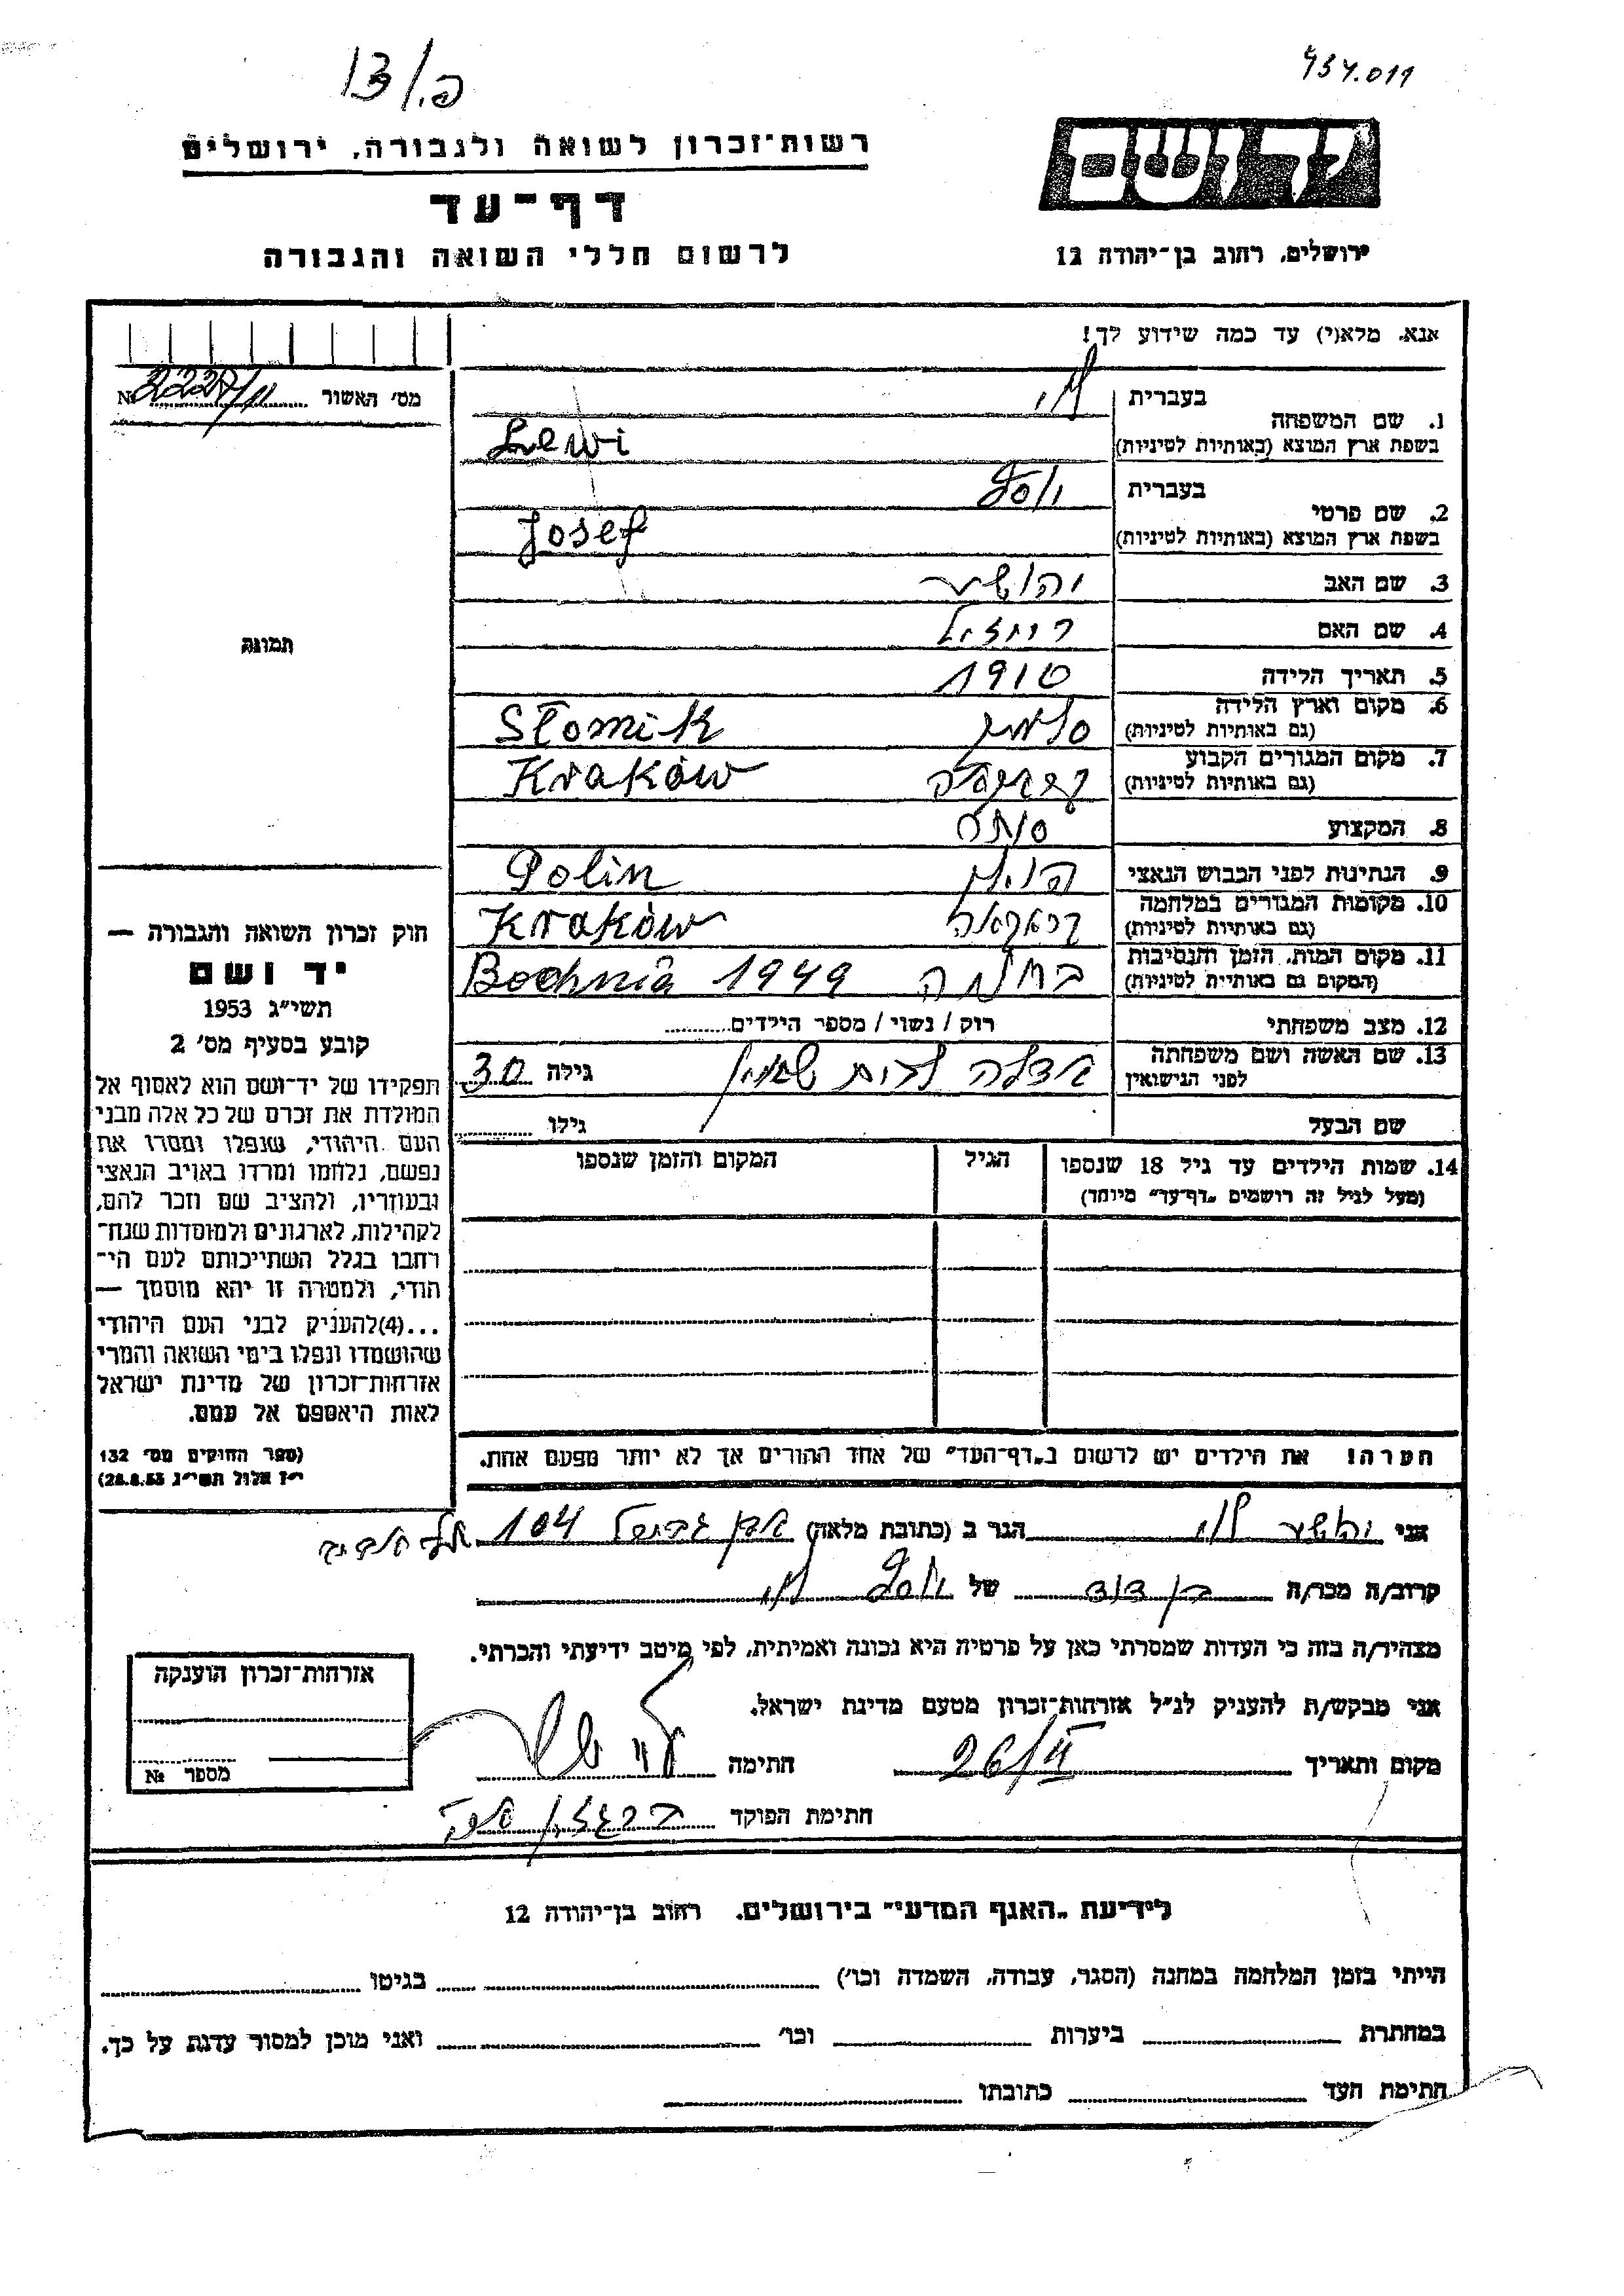 934.011
רשות־זכרון לשואה ולגבורה, ירושלים
דף־עד
לרשום חללי השואה והגבורה
ירושלים, רחוב בן־יהודה 12
אנא, מלא(י) עד כמה שידוע לך!
מס' האשור №
1. שם המשפחה בעברית לוי
בשפת ארץ המוצא (באותיות לטיניות) Lewi
2. שם פרטי בעברית יוסף
בשפת ארץ המוצא (באותיות לטיניות) Josef
3. שם האב יהושע
4. שם האם רייזל
5. תאריך הלידה 1910
6. מקום וארץ הלידה (גם באותיות לטיניות) Słomik
7. מקום המגורים הקבוע (גם באותיות לטיניות) Kraków
8. המקצוע סוחר
9. הנתינות לפני הכבוש הנאצי פולין Polin
10. מקומות המגורים במלחמה (גם באותיות לטיניות) קראקא Kraków
11. מקום המות, הזמן והנסיבות (המקום גם באותיות לטיניות) Bochnia 1949
12. מצב משפחתי רוק / נשוי / מספר הילדים
13. שם האשה ושם משפחתה לפני הנישואין לבית גילה 30
שם הבעל גילו
14. שמות הילדים עד גיל 18 שנספו (מעל לגיל זה רושמים „דף־עד" מיוחד) הגיל המקום והזמן שנספו
הערה! את הילדים יש לרשום ב„דף־העד" של אחד ההורים אך לא יותר מפעם אחת.
תמונה
חוק זכרון השואה והגבורה —
יד ושם
תשי"ג 1953
קובע בסעיף מס' 2
תפקידו של יד־ושם הוא לאסוף אל
המולדת את זכרם של כל אלה מבני
העם היהודי, שנפלו ומסרו את
נפשם, נלחמו ומרדו באויב הנאצי
ובעוזריו, ולהציב שם וזכר להם,
לקהילות, לארגונים ולמוסדות שנח־
רבו בגלל השתייכותם לעם הי־
הודי, ולמטרה זו יהא מוסמך —
...(4) להעניק לבני העם היהודי
שהושמדו ונפלו בימי השואה והמרי
אזרחות־זכרון של מדינת ישראל
לאות היאספם אל עמם.
(ספר החוקים מס' 132
י"ז אלול תשי"ג 28.8.53)
אני יהושע לוי הגר ב (כתובת מלאה) אבן גבירול 104 תל אביב
קרוב/ה מכר/ה בן דוד של יוסף לוי
מצהיר/ה בזה כי העדות שמסרתי כאן על פרטיה היא נכונה ואמיתית, לפי מיטב ידיעתי והכרתי.
אני מבקש/ת להעניק לנ"ל אזרחות־זכרון מטעם מדינת ישראל.
מקום ותאריך 26/II חתימה
חתימת הפוקד
אזרחות־זכרון הוענקה
מספר №
לידיעת „האגף המדעי" בירושלים, רחוב בן־יהודה 12
הייתי בזמן המלחמה במחנה (הסגר, עבודה, השמדה וכו') בגיטו
במחתרת ביערות וכו' ואני מוכן למסור עדות על כך.
חתימת העד כתובתו